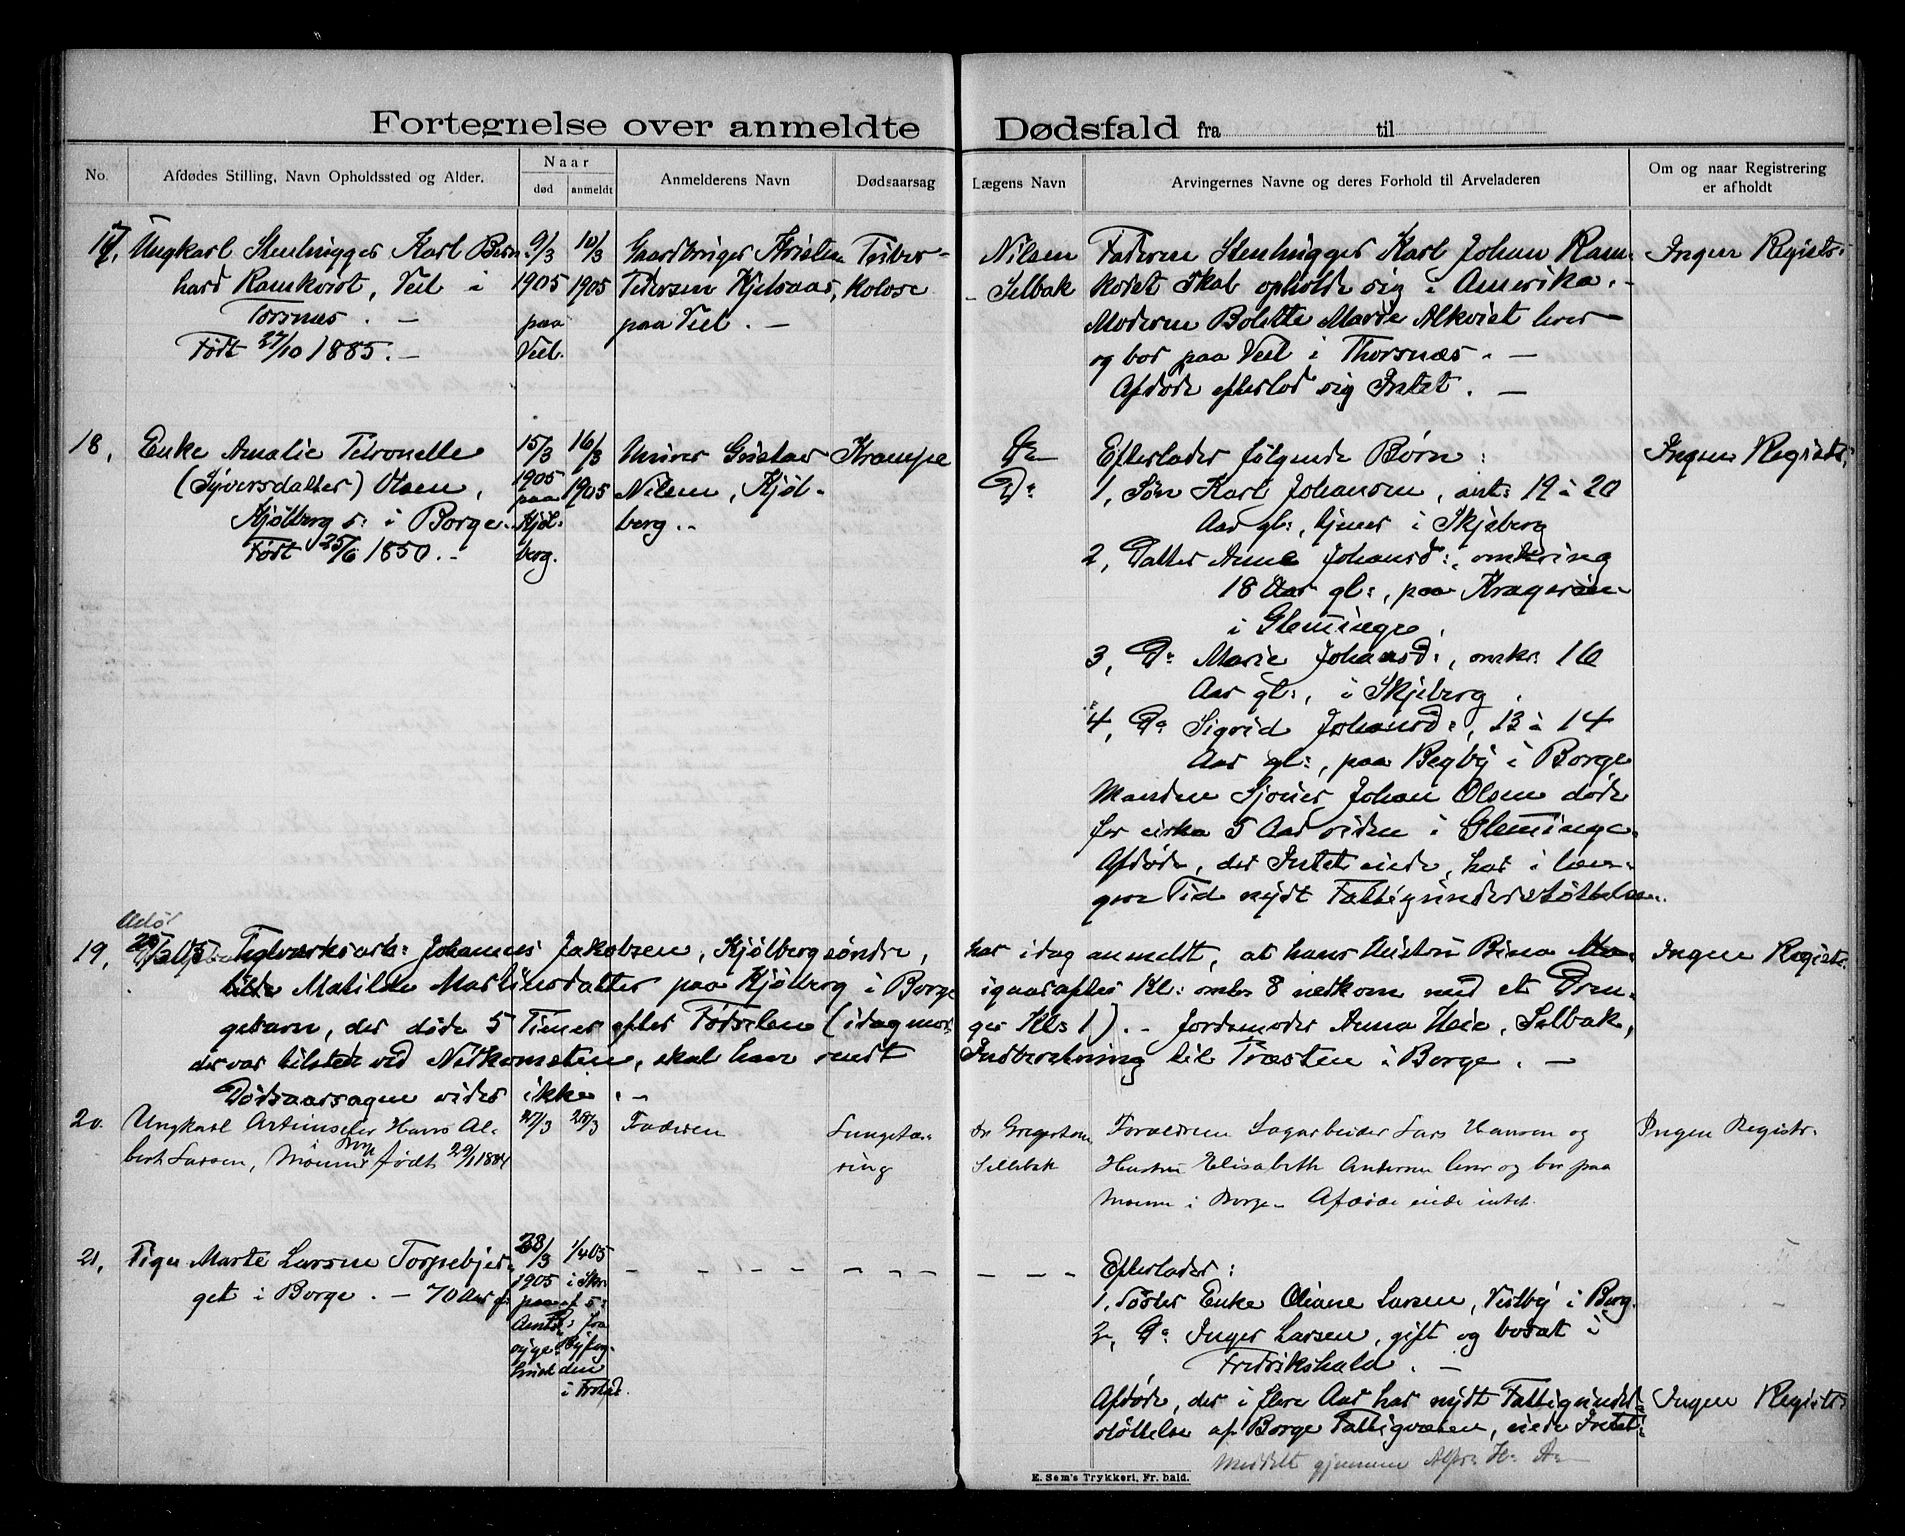 Fortegnelse over anmeldte Dødsfald fra til
No.
Afdødes Stilling, Navn Opholdssted og Alder.
Naar
død
anmeldt
Anmelderens Navn
Dødsaarsag
Lægens Navn
Arvingernes Navne og deres Forhold til Arveladeren
Om og naar Registrering
er afholdt
17, Ungkarl Stenhugger Karl Bern-
hard Ramkvist, Veel i
Torsnæs. —
Født 27/10 1885. —
9/3
1905
paa
Veel.
10/3
1905
Gaardbruger Kristen
Pedersen Kjelsaas,
paa Veel. —
Tuber-
kolose
Nilsen
Selbak
Faderen Stenhugger Karl Johan Ram-
kvist skal opholde sig i Amerika. -
Moderen Bolette Marie Alkvist lever
og bor paa Veel i Thorsnæs. —
Afdøde efterlod sig Intet. —
Ingen Registr.
18, Enke Amalie Petronelle
(Syversdatter) Olsen,
Kjølberg s: i Borge.
Født 25/6 1850. -
15/3
1905
paa
Kjøl-
berg.
16/3
1905
Murer Gustav
Nilsen, Kjøl-
berg. -
Krampe
Do
Efterlader følgende Børn:
1, Søn Karl Johansen, ant: 19 à 20
Aar gl:, tjener i Skjeberg
2, Datter Anne Johansd:, omkring
18 Aar gl:, paa Kragerøen
i Glemminge.
3, Do Marie Johansd:, omkr: 16
Aar gl:, i Skjeberg.
4, Do Sigrid Johansd:, 13 à 14
Aar gl:, paa Begby i Borge
Manden Sjømer Johan Olsen døde
for cirka 5 Aar siden i Glemminge.
Afdøde, der Intet eiede, har i læn-
gere Tid nydt Fattigunderstøttelse.
Ingen Registr.
19, Teglværksarb: Johannes Jakobsen, Kjølberg søndre, har idag anmeldt, at hans Hustru Bina Ma-
tilde Matilde Martinsdatter paa Kjølberg i Borge igaaraftes Kl: omkr 8 nedkom med et Dren-
gebarn, der døde 5 Timer efter Fødselen (idag mor- ges Kl: 1). - Jordemoder Anna Heie, Selbak,
der var tilstede ved Nedkomsten, skal have sendt Indberetning til Præsten i Borge. —
Dødsaarsagen vides ikke. -
Ingen Registr.
20. Ungkarl Hans Al-
bert Larsen, i Borge født 29/1 1884
27/3
28/3
Faderen
Lungetæ-
ring
Dr Gregersen
Sellebak
Forældrene Sagarbeider Lars Hansen og
Hustru Elisabeth Andersen lever og bor paa
i Borge. Afdøde eiede intet.
Ingen Registr.
21, Pige Marte Larsen Torpebjer-
get i Borge. - 70 Aar gl
28/3
1905
paa
Amtss:
syge-
huset
1/4 05
i Skr
af
fra
den
— — — —
— — —
— — —
Efterlader:
1, Søster Enke Oliane Larsen, Vestby i Borg.
2, Do Inger Larsen, gift og bosat i
Fredrikshald. —
Afdøde, der i flere Aar har nydt Fattigunder-
støttelse af Borge Fattigvæsen, eiede Intet.
Meddelt gjennem
Ingen Registr.
E. Sem's Trykkeri, Fr. hald.